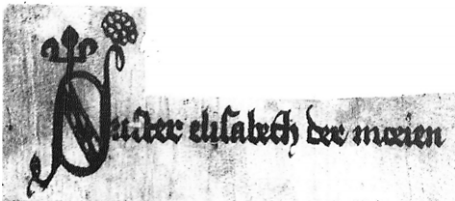 Suster elisabeth der moeien